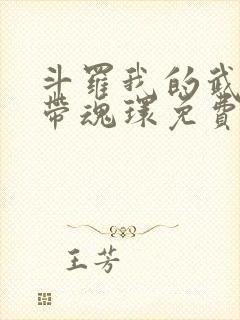 斗羅我的武
帶魂環免費
王芳